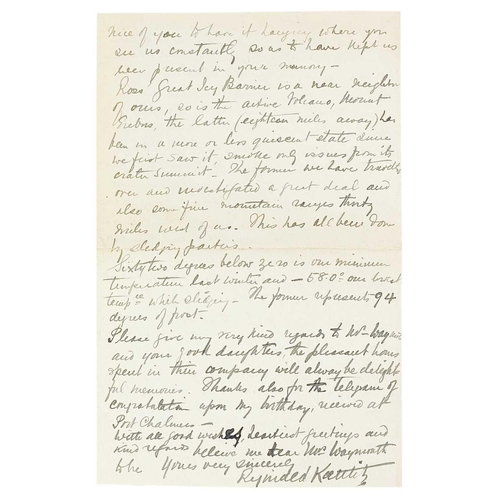 nice of you to have it hanging where you
see us constantly, so as to have kept us
ever present in your memory —
Ross' Great Icy Barrier is a near neighbor
of ours, so is the active Volcano, Mount
Erebus, the latter (eighteen miles away) has
been in a more or less quiescent state since
we first saw it, smoke only issues from its
crater summit — The former we have travelled
over and investigated a great deal and
also some fine mountain ranges thirty
miles west of us. This has all been done
by sledging parties —
Sixty two degrees below zero is our minimum
temperature last winter and — 58.0° our lowest
tempre while sledging — The former represents 94
degrees of frost.
Please give my very kind regards to Mrs
and your good daughters, the pleasant hours
spent in their company will always be delight
ful memories. Thanks also for the telegram of
congratulation upon my birthday, received at
Port Chalmers —
With all good wishes, heartiest greetings and
kind regard believe me dear Mr Waymouth
to be Yours very sincerely
Reginald Koettlitz